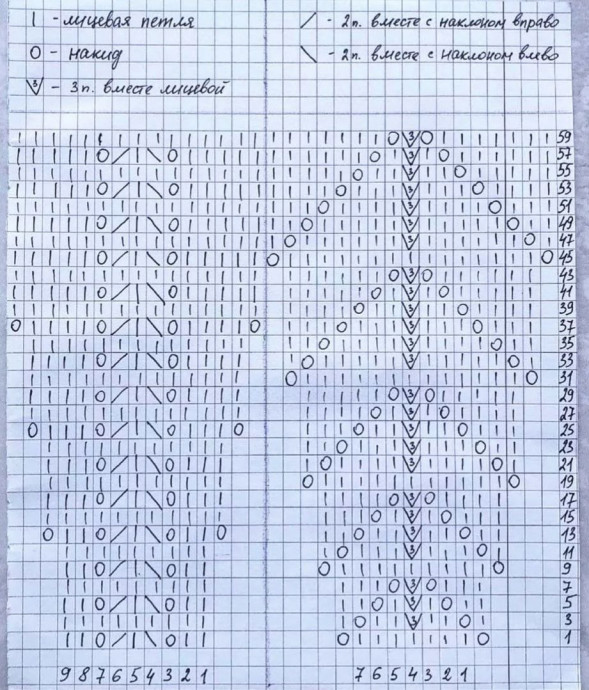 | - лицевая петля / - 2п. вместе с наклоном вправо
O - накид \ - 2п. вместе с наклоном влево
3 - 3п. вместе лицевой
59
57
55
53
51
49
47
45
43
41
39
37
35
33
31
29
27
25
23
21
19
17
15
13
11
9
7
5
3
1
9 8 7 6 5 4 3 2 1 7 6 5 4 3 2 1